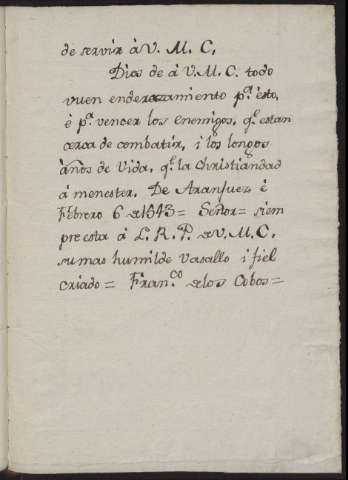 de servir à V. M. C,
Dios de à V. M. C. todo
vuen enderazamiento pª. esto,
è pª. vencer los enemigos, qᵉ. estan
cerca de combatir, i los longos
años de vida, qᵉ. la christiandad
á menester. De Aranjuez è
Febrero 6 de 1543= Señor= siem
pre esta à L. R. P. de V. M. C.
su mas humilde vasallo i fiel
criado= Franᶜᵒ. de los Cobos=